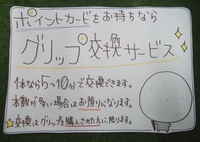 ポイントカードをお持ちなら
グリップ交換サービス
1本なら5~10分で交換できます。
本数が多い場合はお預りになります。
交換はグリップを購入された方に限ります。